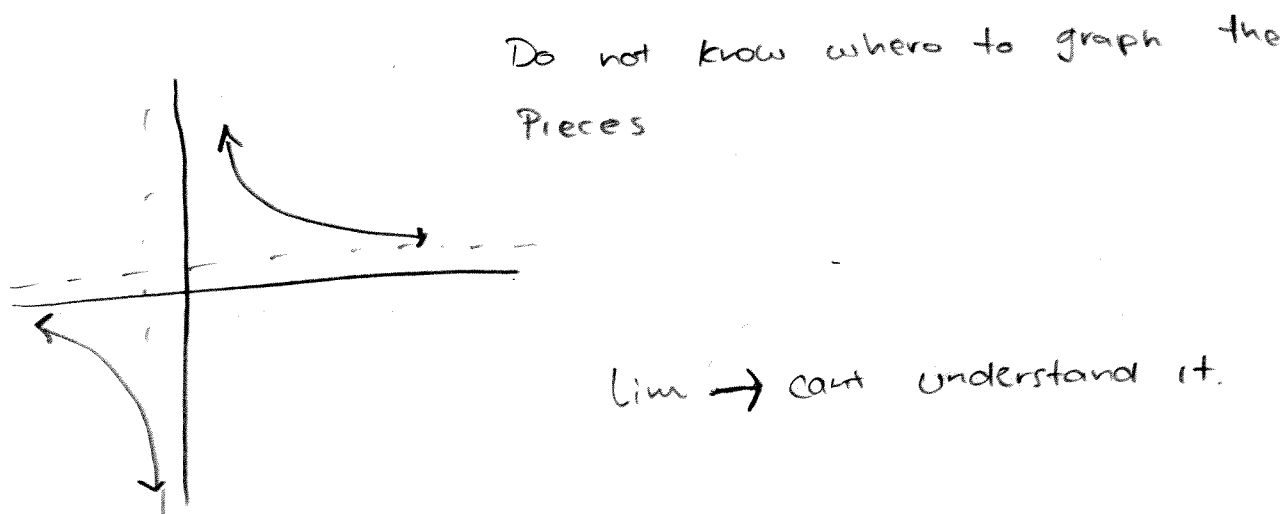 Do not know where to graph the
Pieces
lim → cant understand it.